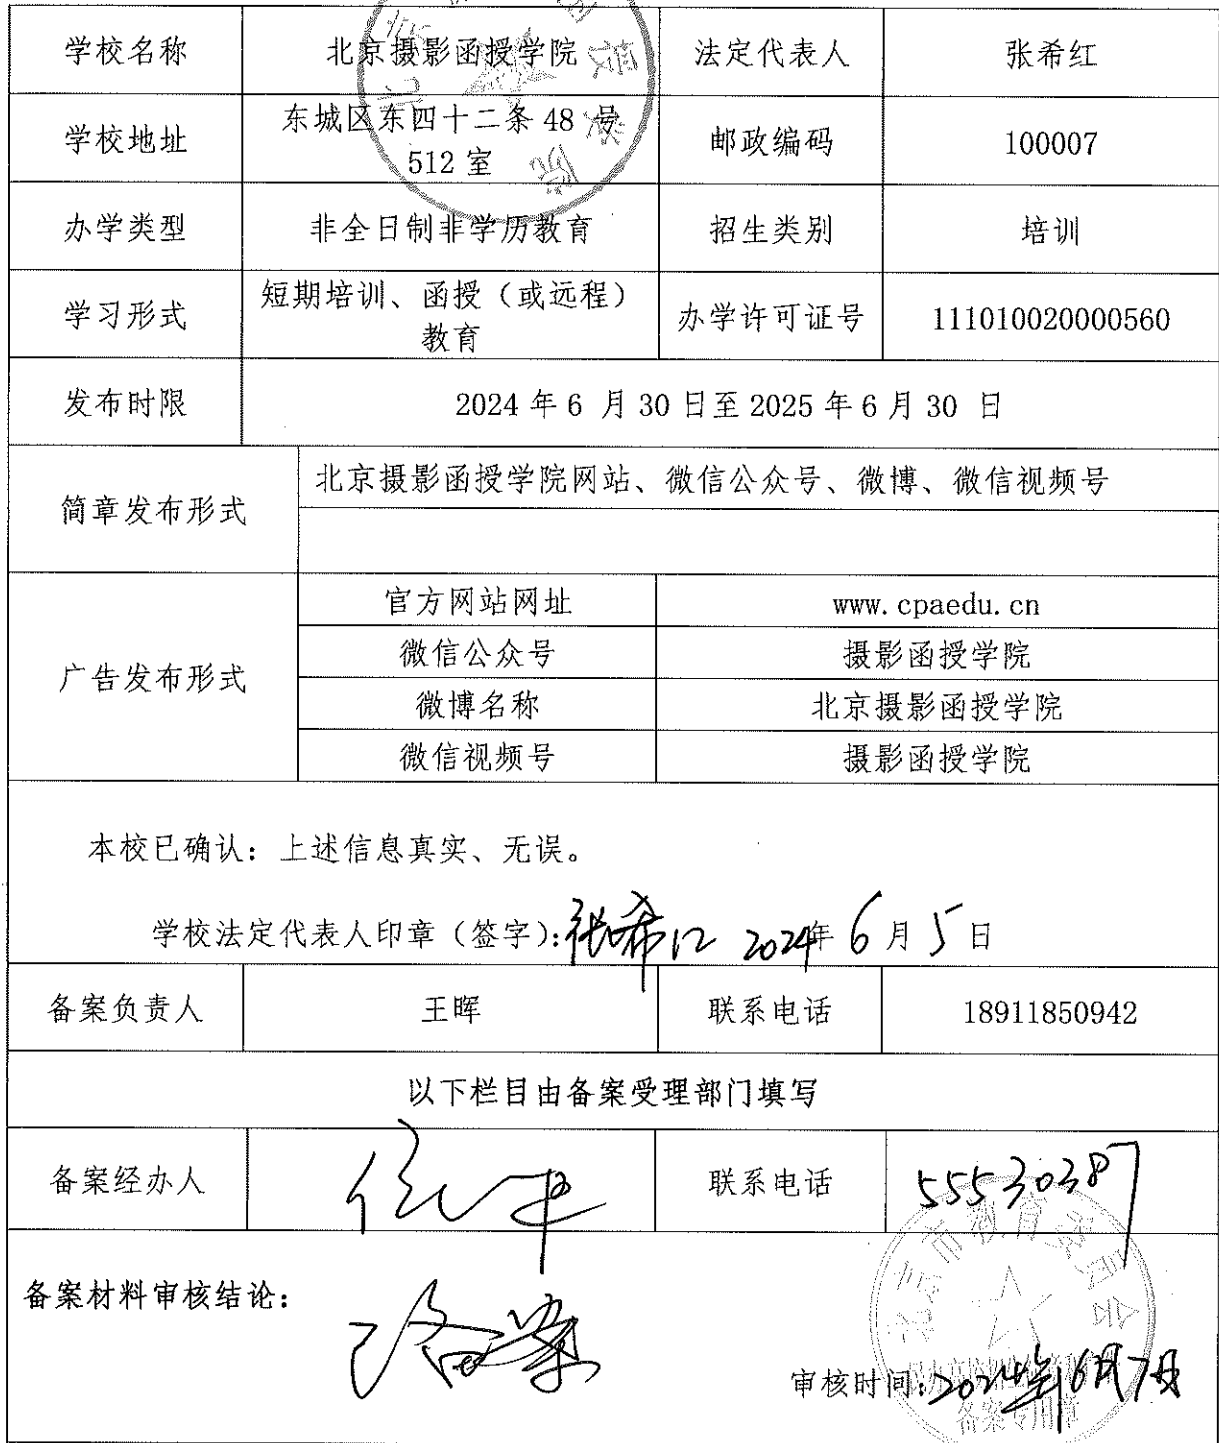 学校名称 北京摄影函授学院 法定代表人 张希红
学校地址 东城区东四十二条 48 号 邮政编码 100007
512 室
办学类型 非全日制非学历教育 招生类别 培训
学习形式 短期培训、函授（或远程） 办学许可证号 111010020000560
教育
发布时限 2024 年 6 月 30 日至 2025 年 6 月 30 日
简章发布形式 北京摄影函授学院网站、微信公众号、微博、微信视频号
广告发布形式 官方网站网址 www.cpaedu.cn
微信公众号 摄影函授学院
微博名称 北京摄影函授学院
微信视频号 摄影函授学院
本校已确认：上述信息真实、无误。
学校法定代表人印章（签字）：张希红 2024年 6 月 5 日
备案负责人 王晖 联系电话 18911850942
以下栏目由备案受理部门填写
备案经办人 联系电话 55530387
备案材料审核结论：
已备案
北京市教育委员会
审核时间：2024年6月7日
备案专用章